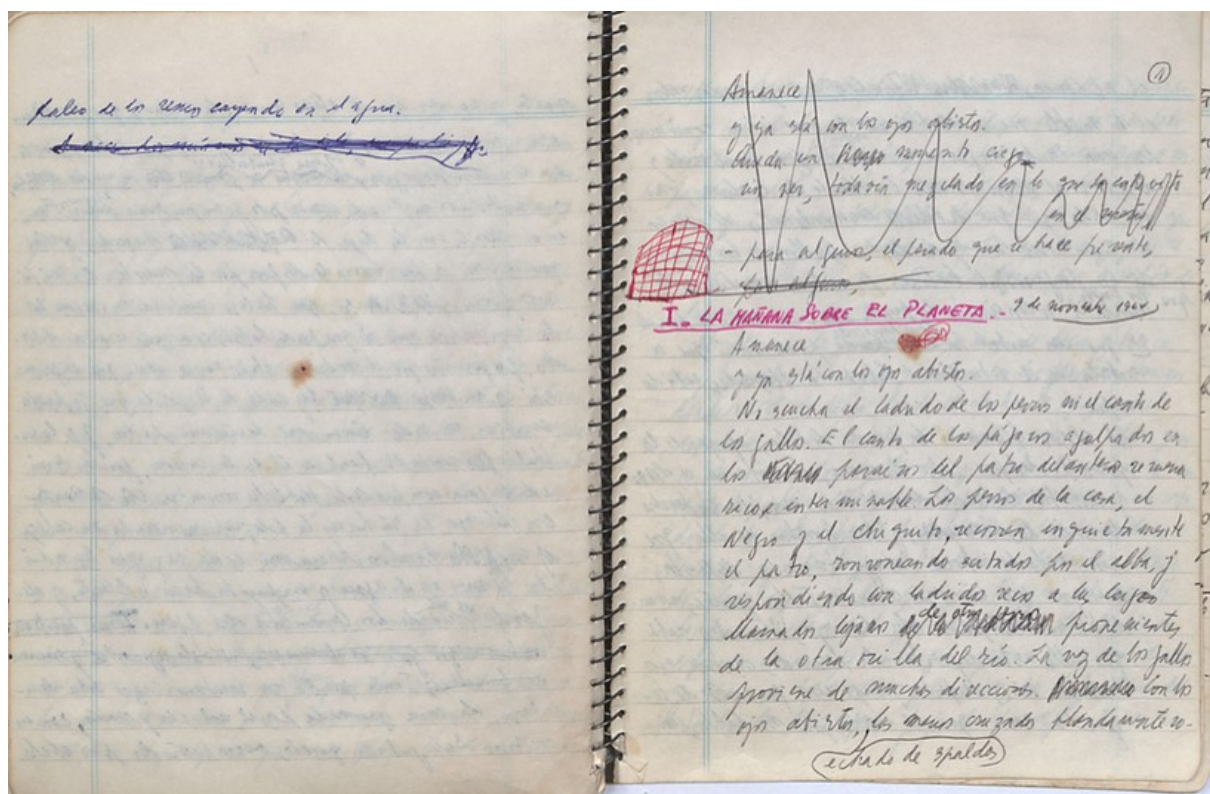 paleo de los remos cayendo en el agua.
1
Amanece
y ya está con los ojos abiertos.
sin ver, todavía mezclado en lo que
para algunos, el pasado que se hace presente,
para algunos,
I. LA MAÑANA SOBRE EL PLANETA.- 9 de noviembre
Amanece
y ya está con los ojos abiertos.
No escucha el ladrido de los perros ni el canto de
los gallos. El canto de los pájaros agolpados en
los paraísos del patio delantero resuena
rico e interminable. Los perros de la casa, el
Negro y el Chiquito, recorren inquietamente
el patio, ronroneando excitados por el alba, y
respondiendo con ladridos secos a los largos
llamados lejanos de provenientes
de la otra orilla del río. La voz de los gallos
proviene de muchas direcciones. Con los
ojos abiertos, las manos cruzadas blandamente so-
echado de espaldas